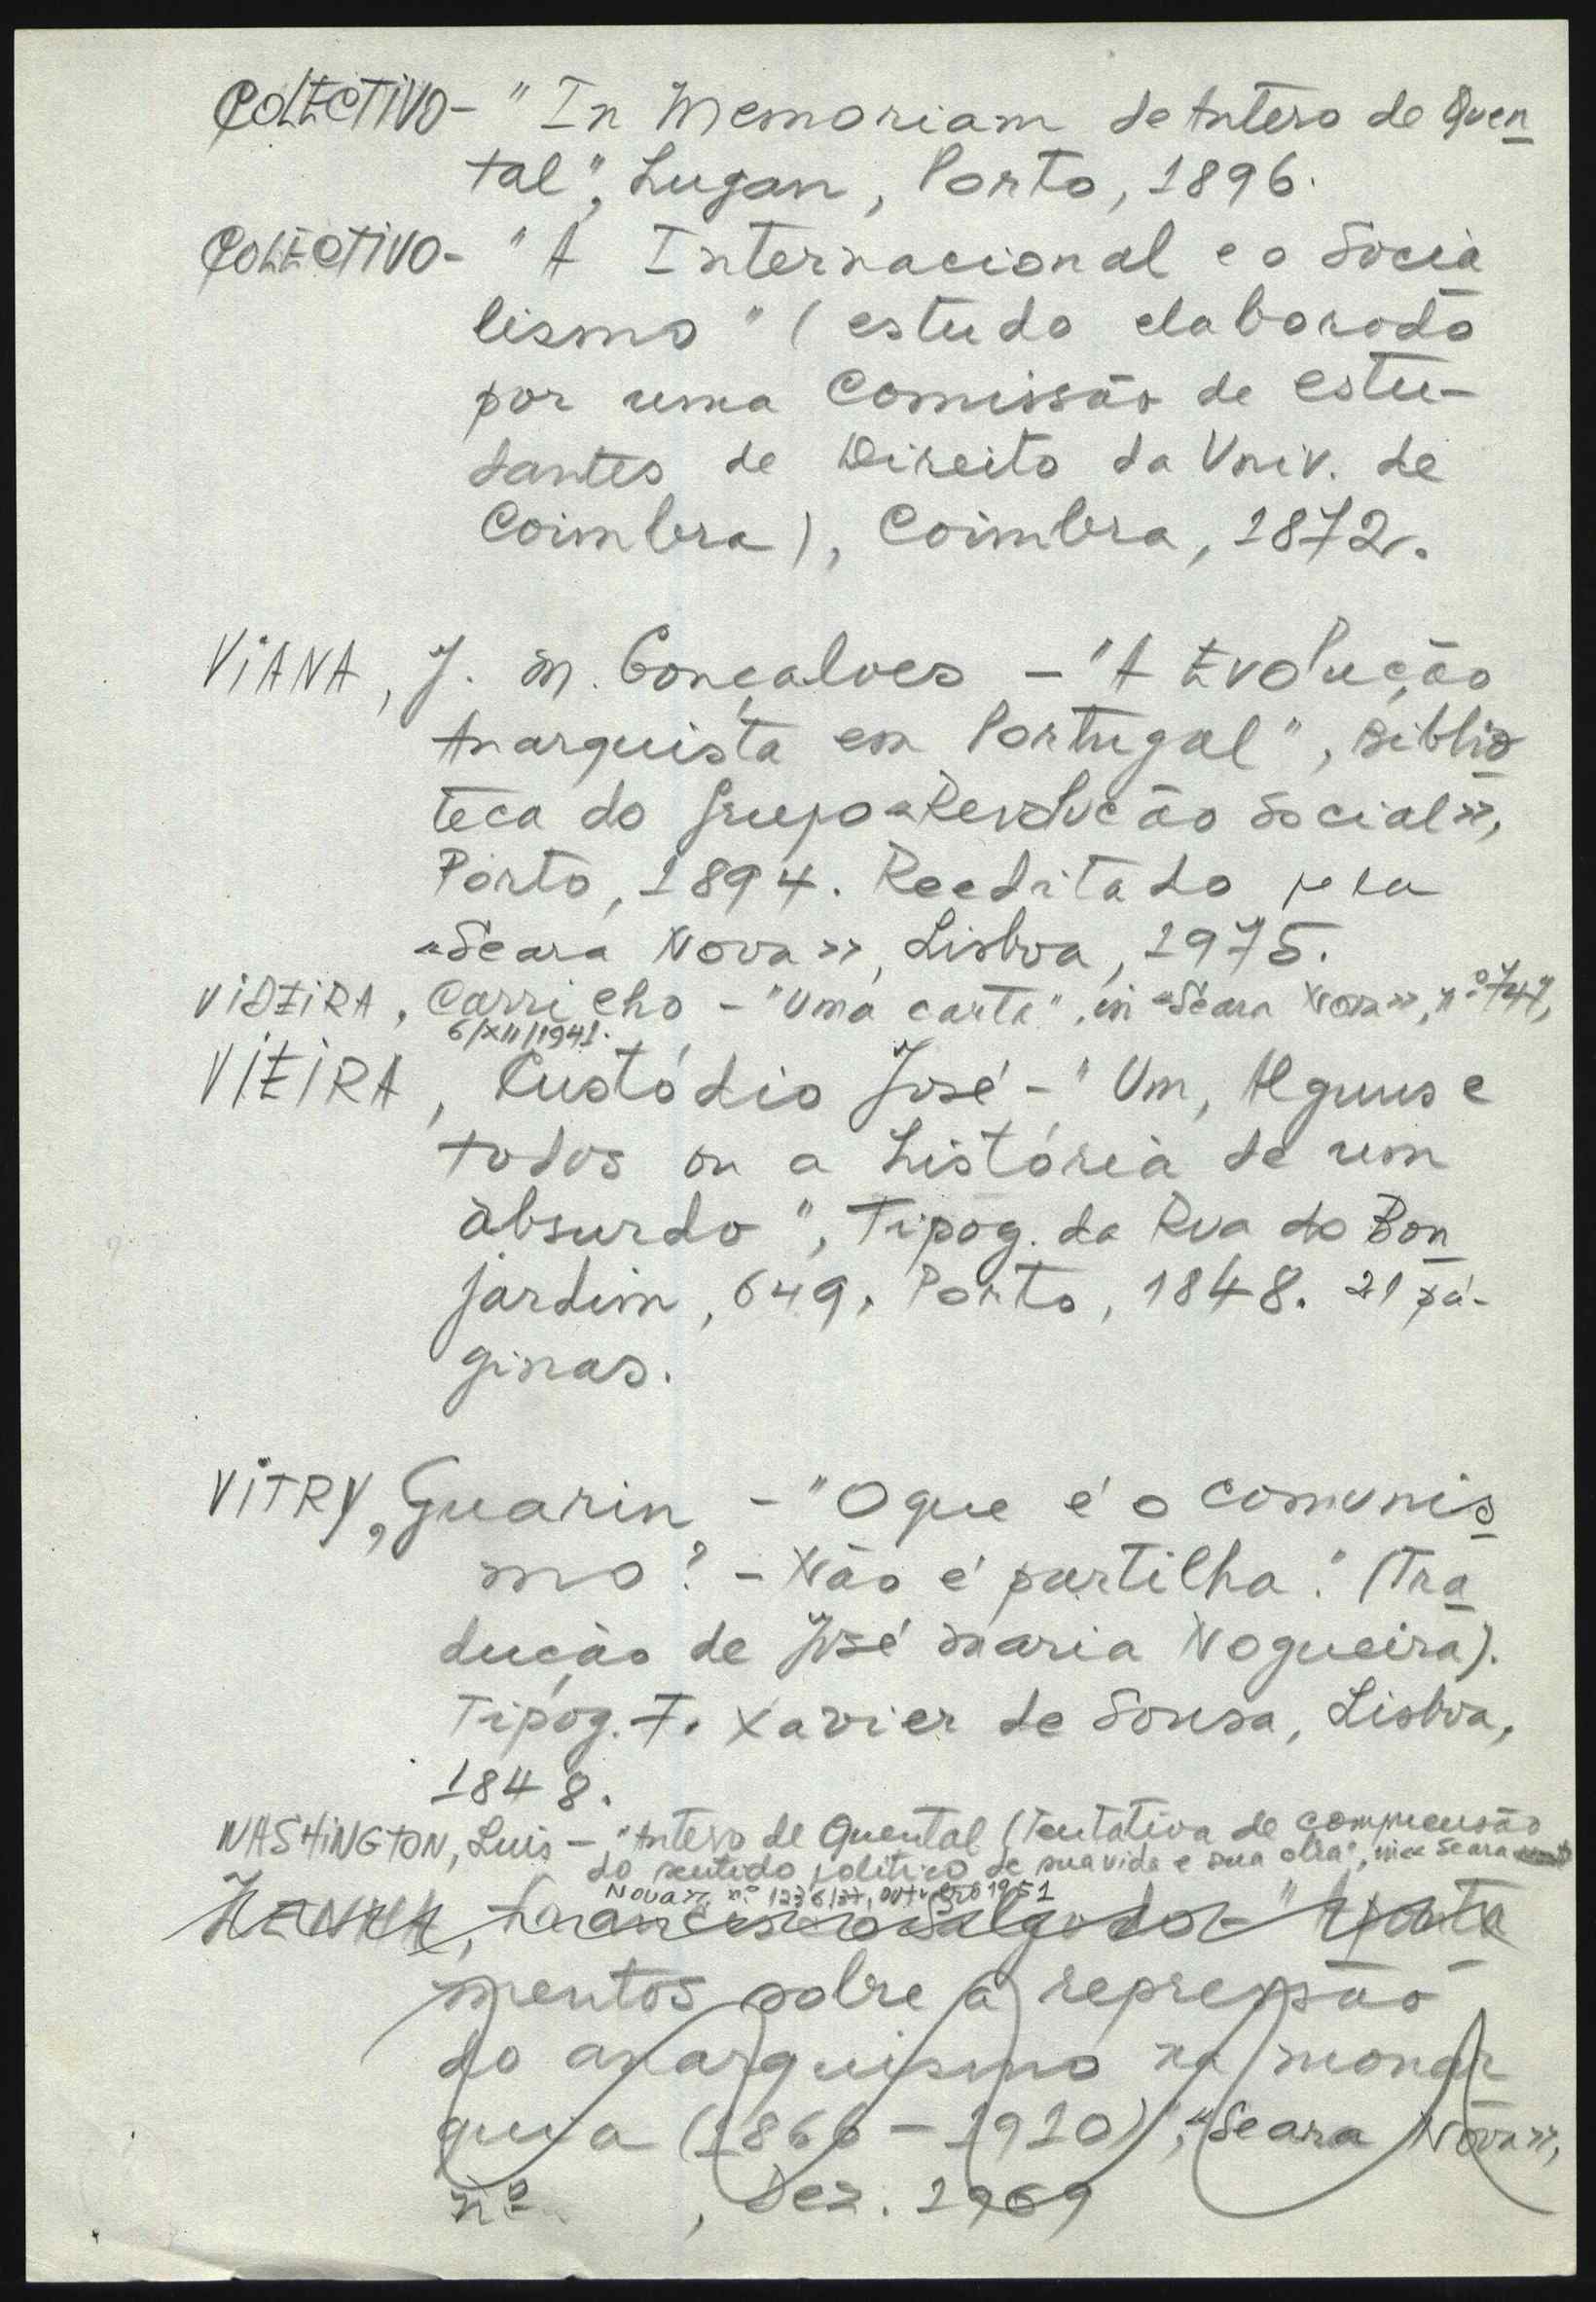 COLECTIVO - "In Memoriam de Antero de Quen
tal", Lugan, Porto, 1896.
COLECTIVO - "A Internacional e o Socia
lismo" (estudo elaborado
por uma Comissão de Estu-
dantes de Direito da Univ. de
Coimbra), Coimbra, 1872.
VIANA, J. M. Gonçalves - "A Evolução
Anarquista em Portugal", Biblio
teca do grupo «Revolução Social»,
Porto, 1894. Reeditado pela
«Seara Nova», Lisboa, 1975.
VIDEIRA, Carrilho - "Uma carta", in «Seara Nova», nº 747,
6/XII/1941.
VIEIRA, Custódio José - "Um, Alguns e
todos ou a história de um
absurdo", Tipog. da Rua do Bon
jardim, 649, Porto, 1848. 21 pá-
ginas.
VITRY, Guarin - "O que é o comunis
mo? - Não é partilha." (Tra
dução de José Maria Nogueira).
Tipog. F. Xavier de Sousa, Lisboa,
1848.
WASHINGTON, Luís - "Antero de Quental (Tentativa de compreensão
do sentido político de sua vida e sua obra", in «Seara
Nova», nº 1236/37, outubro 1951
Francisco Salgado - "Aponta
mentos sobre a repressão
do anarquismo na monar
quia (1866-1910)", «Seara Nova»,
nº , Dez. 1969